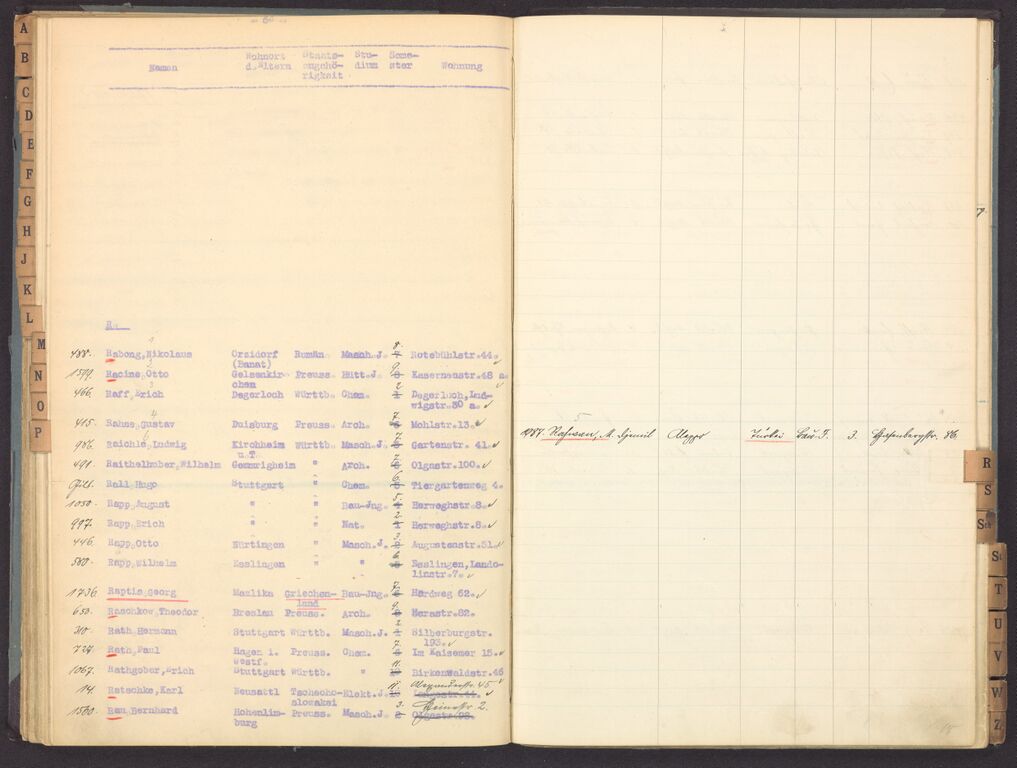 A
B
C
D
E
F
G
H
J
K
L
M
N
O
P
- 60 -
Namen Wohnort d. Eltern Staats-angehö-rigkeit Stu-dium Seme-ster Wohnung
Ra
488. Rabong, Nikolaus Orzidorf (Banat) Rumän. Masch.J. 8. Rotebühlstr.44.
1599. Racine, Otto Gelsenkir-chen Preuss. Hütt.J. 9. Kasernenstr.48 a.
466. Raff, Erich Degerloch Württb. Chem. 2 1 Degerloch, Lud-wigstr.30 a.
415. Rahm, Gustav Duisburg Preuss. Arch. 7. Mohlstr.13.
986. Raichle, Ludwig Kirchheim u.T. Württb. Masch.J. 7. Gartenstr. 41.
491. Raithelhuber, Wilhelm Gemmrigheim " Arch. 7. Olgastr.100.
Rall, Hugo Stuttgart " Chem. 6. Tiergartenweg 4.
1050. Rapp, August " " Bau-Jng. 5. Herweghstr.8.
997. Rapp, Erich " " Nat. 2. 1 Herweghstr.8.
446. Rapp, Otto Nürtingen " Masch.J. 3. 2 Augustenstr.51.
580. Rapp, Wilhelm Esslingen " " 6. Esslingen, Lando-linstr.7.
1736 Raptis, Georg Mazlika Griechen-land Bau-Jng. 7. Hardweg 62.
653. Raschkow, Theodor Breslau Preuss. Arch. 9. Werastr.82.
310. Rath, Hermann Stuttgart Württb. Masch.J. 2. 1 Silberburgstr. 193.
727. Rath, Paul Hagen i. Westf. Preuss. Chem. 7. Im Kaisemer 15.
1067. Rathgeber, Erich Stuttgart Württb. " 11. 10 Birkenwaldstr.46
14. Ratschke, Karl Neusattl Tschecho-slowakei Elekt.J. 11. 10 45.
1560. Rau, Bernhard Hohenlim-burg Preuss. Masch.J. 3. 2 Heinestr. 2. Olgastr.98.
1987. 5 M. Djemil Aleppo Türkei Bau-J. 3. Hasenbergstr. 86.
R
S
Sch
St
T
U
V
W
Z